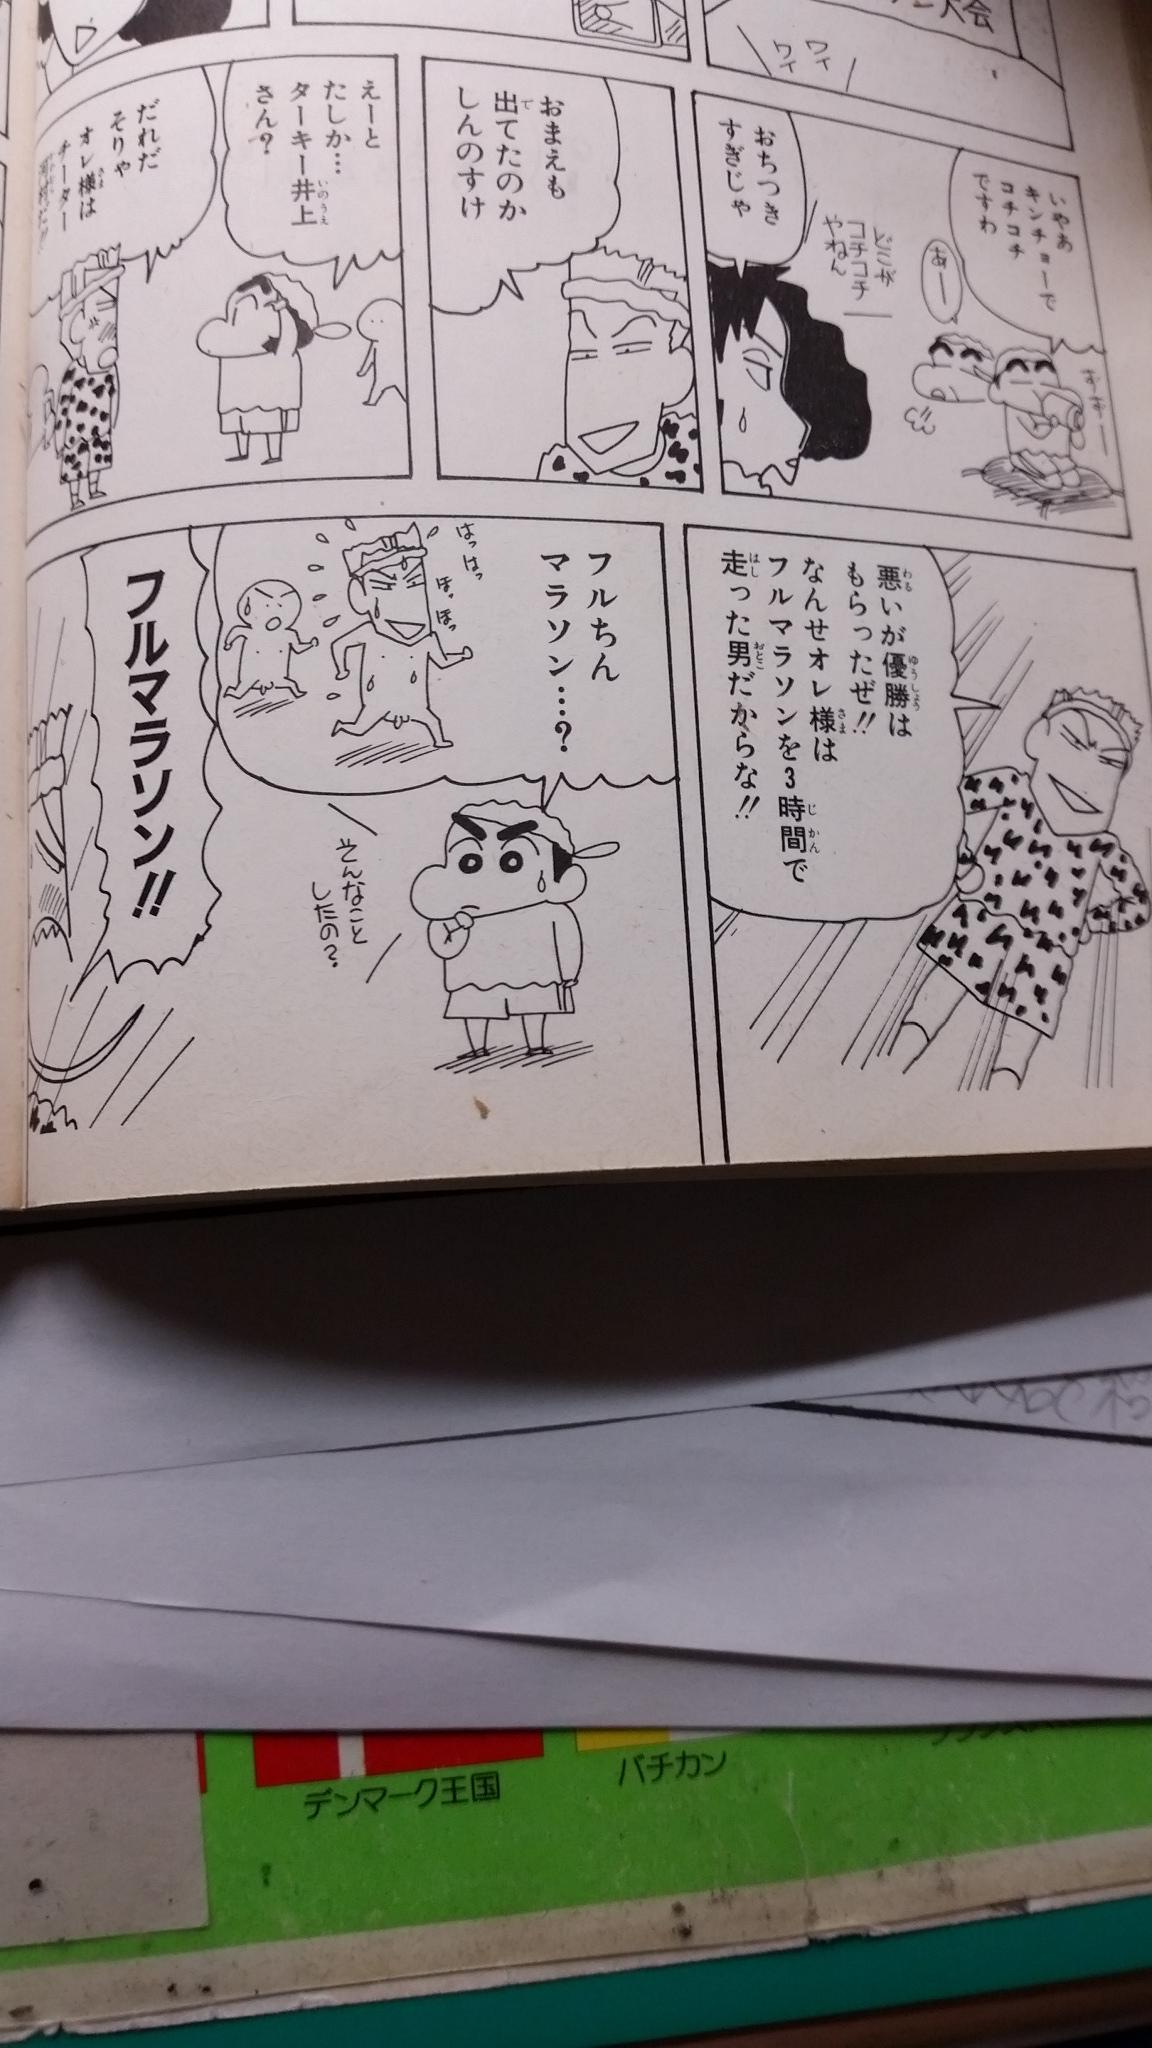 大会
ワイ
ワイ
いやぁ
キンチョーで
コチコチ
ですわ
あー
どこが
コチコチ
やねん
おちつき
すぎじゃ
おまえも
出てたのか
しんのすけ
えーと
たしか…
ターキー井上
さん?
だれだ
そりゃ
オレ様は
チーター
悪いが優勝は
もらったぜ!!
なんせオレ様は
フルマラソンを3時間で
走った男だからな!!
フルちん
マラソン…?
はっはっ
ほっほっ
そんなこと
したの?
フルマラソン!!
デンマーク王国
バチカン